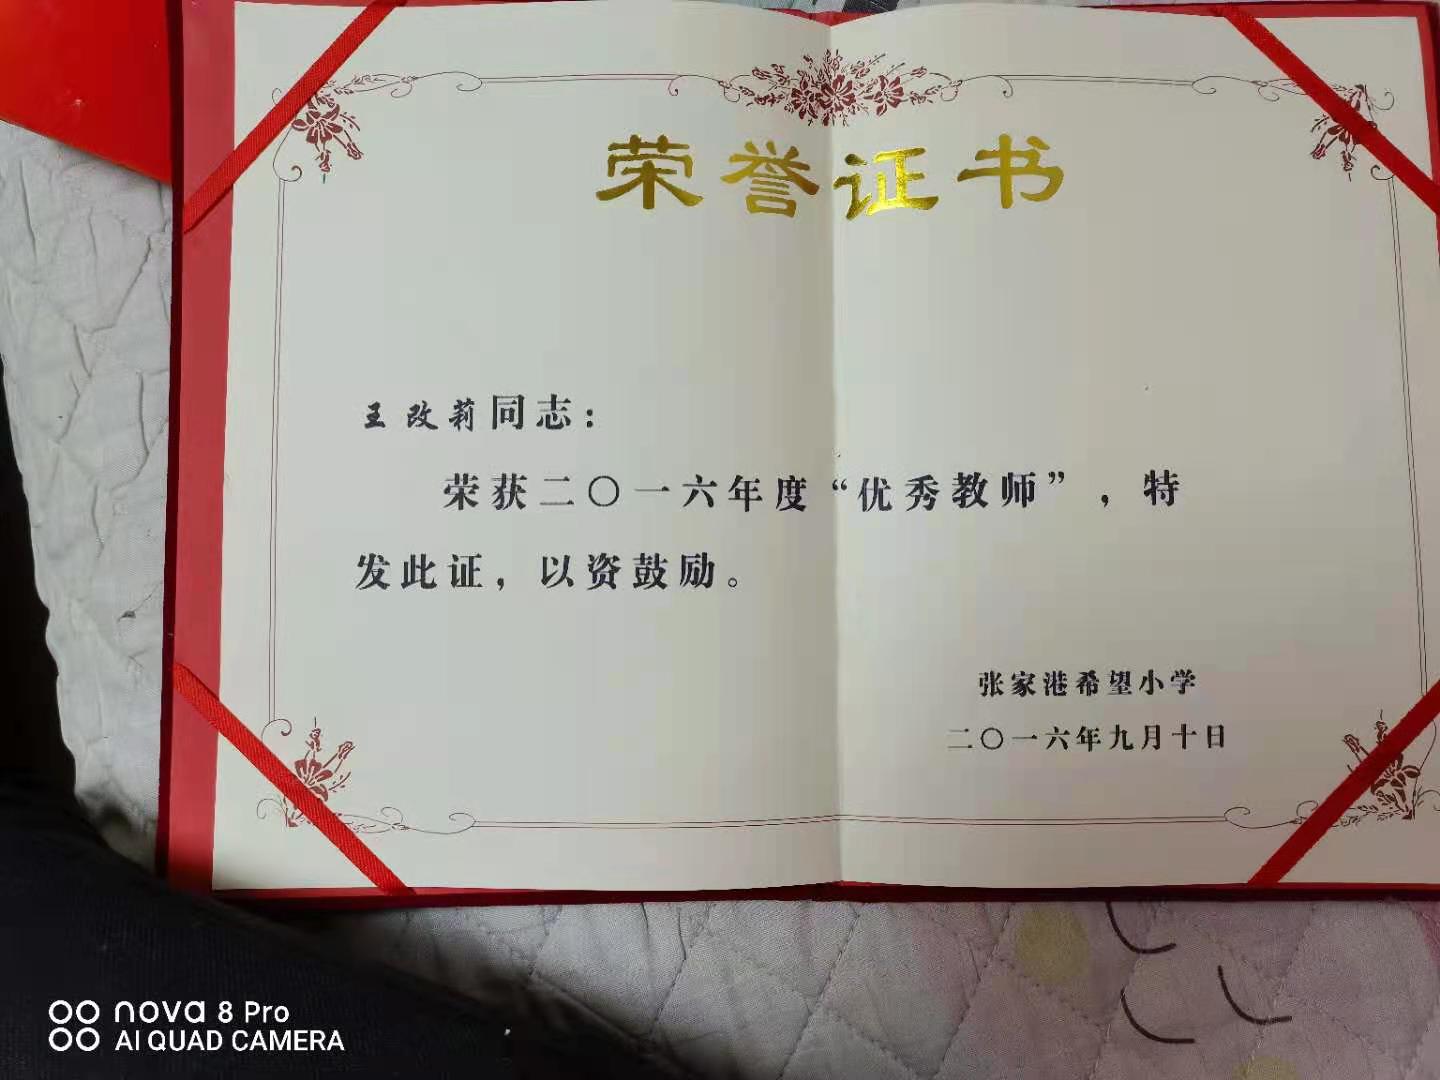 荣誉证书
王改莉同志：
荣获二〇一六年度“优秀教师”，特
发此证，以资鼓励。
张家港希望小学
二〇一六年九月十日
nova 8 Pro
AI QUAD CAMERA